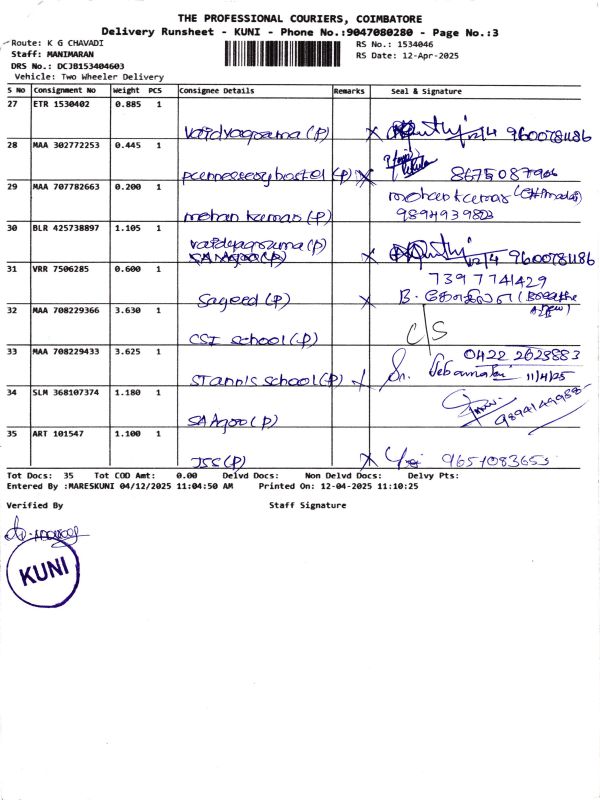 THE PROFESSIONAL COURIERS, COIMBATORE
Delivery Runsheet - KUNI - Phone No.:9047080280 - Page No.:3
Route: K G CHAVADI
RS No.: 1534046
Staff: MANIMARAN
RS Date: 12-Apr-2025
DRS No.: DCJB153404603
Vehicle: Two Wheeler Delivery
S No Consignment No Weight PCS Consignee Details Remarks Seal & Signature
27 ETR 1530402 0.885 1
vaidyagrama (P) x 12/4 9600781186
28 MAA 302772253 0.445 1
hostel (P) x 8675087906
29 MAA 707782663 0.200 1
mohan kumar (P) mohan kumar
9894939823
30 BLR 425738897 1.105 1
vaidyagrama (P) x 12/4 9600781186
31 VRR 7506285 0.600 1
7397741429
Sageed (P) x B.
32 MAA 708229366 3.630 1
CSI school (P) C/S
33 MAA 708229433 3.625 1
0422 2623883
STannis school (P) x Sr. 11/4/25
34 SLM 368107374 1.180 1
SAAgoo (P) 9894149988
35 ART 101547 1.100 1
JSS (P) x 9657083653
Tot Docs: 35 Tot COD Amt: 0.00 Delvd Docs: Non Delvd Docs: Delvy Pts:
Entered By :MARESKUNI 04/12/2025 11:04:50 AM Printed On: 12-04-2025 11:10:25
Verified By Staff Signature
KUNI